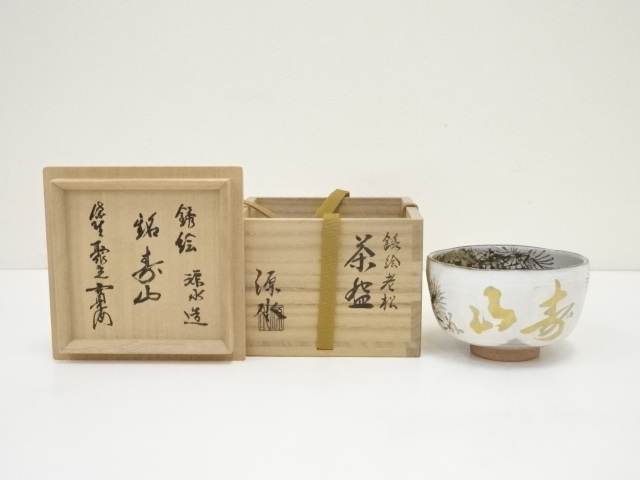 銹絵 源水造
銘 寿山
銹絵老松
茶盌
源水
寿山